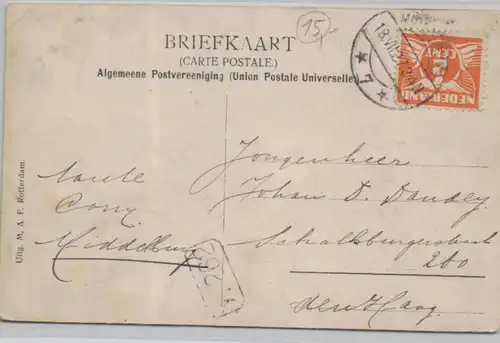 15,-
BRIEFKAART
(CARTE POSTALE.)
Algemeene Postvereeniging (Union Postale Universelle)
NEDERLAND
CENT
Uitg. M. A. F. Rotterdam.
tante
Corry
Middelburg
Jongenheer
Johan D. Dandey
Schalkburgerstraat
260
den Haag